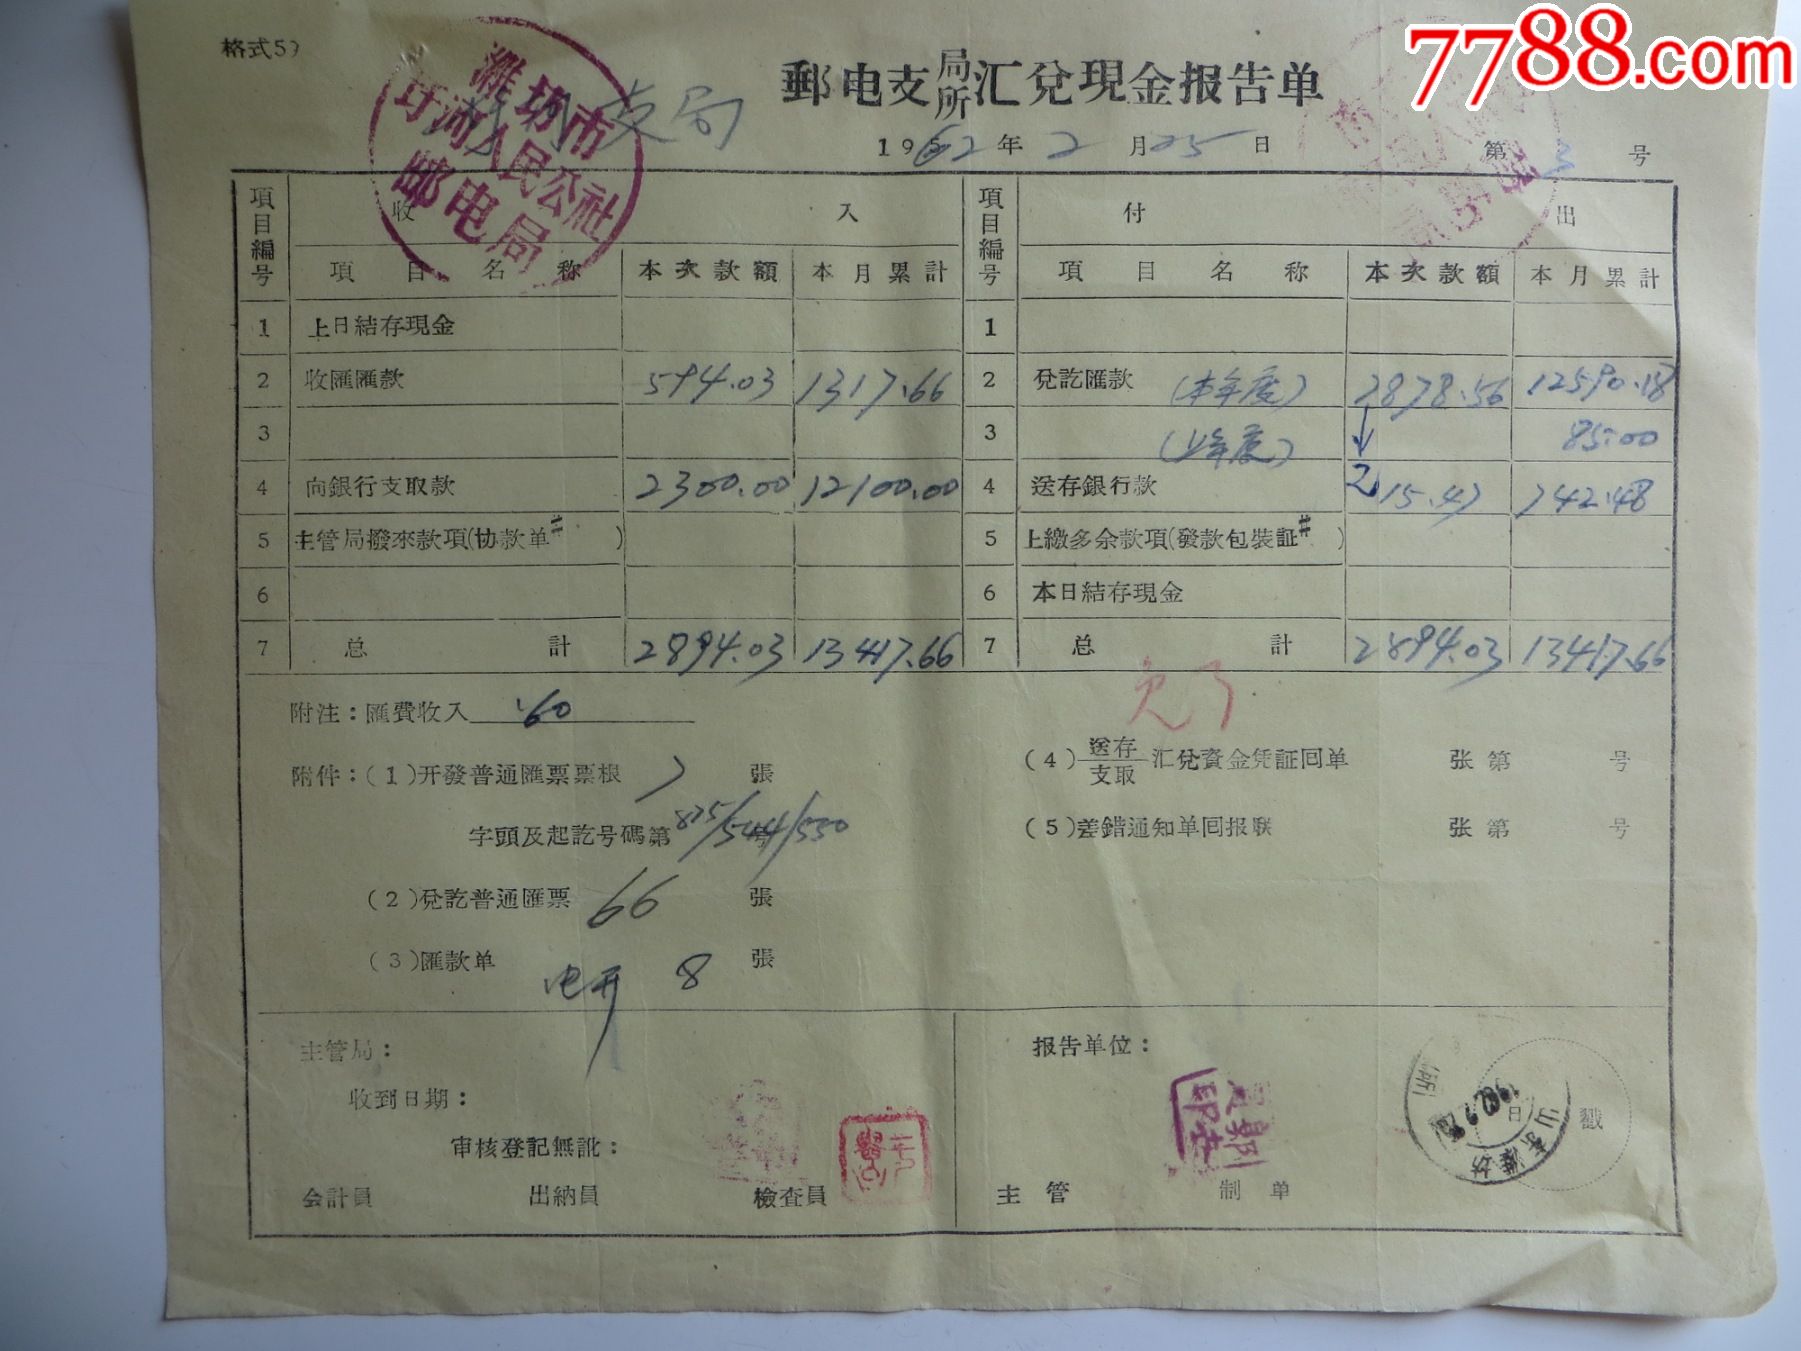 7788.com
格式5
邮电支局所汇兌現金报告单
支局
潍坊市
圩河人民公社
邮电局
1962年2月25日 第3号
項目編号 收入 項目編号 付出
項目名称 本次款額 本月累計 項目名称 本次款額 本月累計
1 上日結存現金 1
2 收匯匯款 594.03 1317.66 2 兌訖匯款 (本年度) 2878.56 12590.18
3 3 (上年度) 85.00
4 向銀行支取款 2300.00 12100.00 4 送存銀行款 15.47 742.48
5 主管局撥來款項(协款单# ) 5 上繳多余款項(發款包裝証# )
6 6 本日結存現金
7 总計 2894.03 13417.66 7 总計 2894.03 13417.66
附注：匯費收入 .60
附件：(1)开發普通匯票票根 7 張
字頭及起訖号碼第 825/544/550 号
(2)兌訖普通匯票 66 張
(3)匯款单 电开 8 張
(4)送存支取汇兌資金凭証回单 张第 号
(5)差錯通知单回报联 张第 号
主管局：
收到日期：
审核登記無訛：
会計員 出納員 檢查員
报告单位：
主管 制单
日戳
山东潍坊